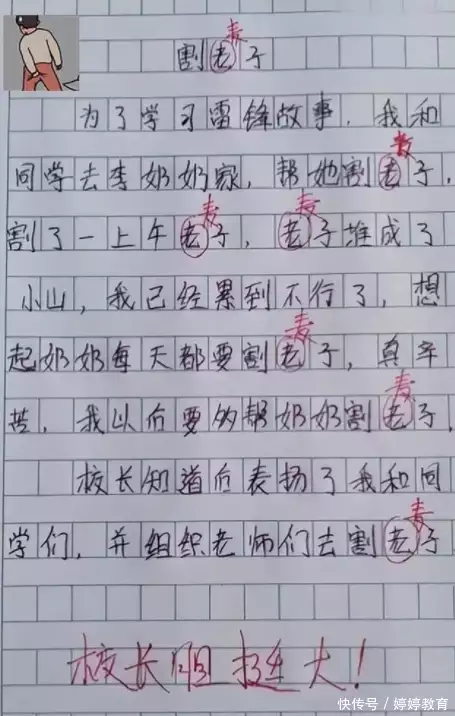 麦
割老子
为了学习雷锋故事，我和
麦
同学去李奶奶家，帮她割老子，
麦 麦
割了一上午老子，老子堆成了
小山，我已经累到不行了，想
麦
起奶奶每天都要割老子，真辛
麦
苦，我以后要多帮奶奶割老子，
校长知道后表扬了我和同
麦
学们，并组织老师们去割老子
校长胆挺大！
快传号 / 婷婷教育